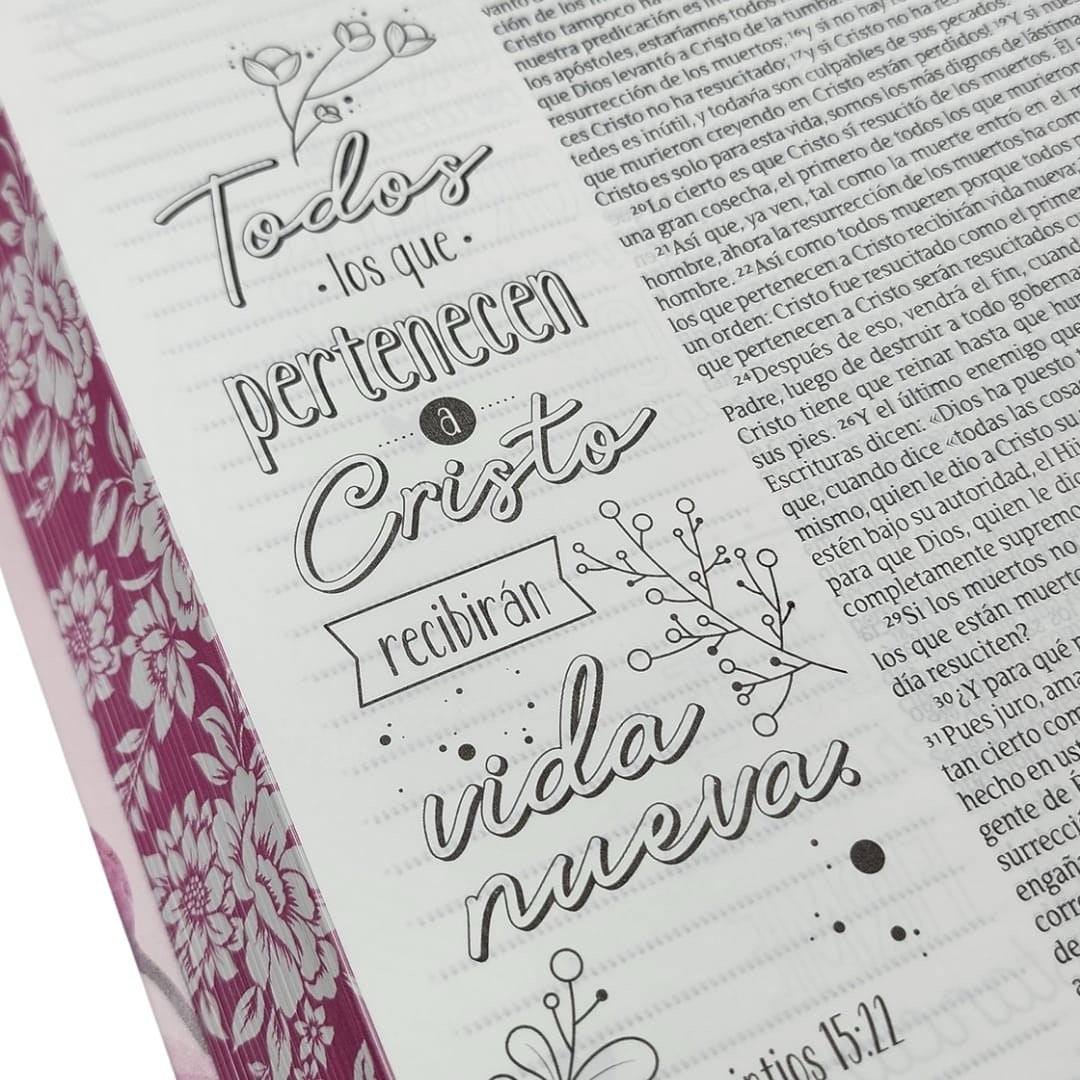 Todos
·los que·
pertenecen
a
Cristo
recibirán
vida
nueva.
15:22
Cristo tampoco ha
nuestra predicación es
los apóstoles, estaríamos todos
que Dios levantó a Cristo de la tumba
resurrección de los muertos; ¹⁶y si no hay
ces Cristo no ha resucitado; ¹⁷y si Cristo no ha
tedes es inútil, y todavía son culpables de sus pecados.
que murieron creyendo en Cristo están perdidos! ¹⁹Y si
Cristo es solo para esta vida, somos los más dignos de lástima
²⁰Lo cierto es que Cristo sí resucitó de los muertos. Él
una gran cosecha, el primero de todos los que murieron
²¹Así que, ya ven, tal como la muerte entró en el
hombre, ahora la resurrección de los muertos ha
hombre. ²²Así como todos mueren porque todos
los que pertenecen a Cristo recibirán vida nueva;
un orden: Cristo fue resucitado como el primero
que pertenecen a Cristo serán resucitados
²⁴Después de eso, vendrá el fin, cuando
Padre, luego de destruir a todo
Cristo tiene que reinar hasta que
sus pies. ²⁶Y el último enemigo que
Escrituras dicen: «Dios ha puesto
que, cuando dice «todas las cosas
mismo, quien le dio a Cristo su
estén bajo su autoridad, el
para que Dios, quien le
completamente supremo
²⁹Si los muertos no
los que están
día resuciten?
³⁰¿Y para qué
³¹Pues juro,
tan cierto
hecho en
gente de